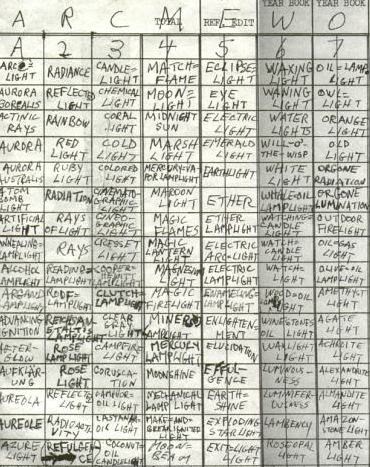 YEAR BOOK YEAR BOOK
A R C M E W O
TOTAL REF. EDIT
A 2 3 4 5 6 7
ARC= LIGHT RADIANCE CANDLE= LIGHT MATCH= FLAME ECLIPSE= LIGHT WAXING LIGHT OIL=LAMP LIGHT
AURORA BOREALIS REFLECTED LIGHT CHEMICAL LIGHT MOON= LIGHT EYE LIGHT WANING LIGHT OWL= LIGHT
ACTINIC RAYS RAINBOW CORAL LIGHT MIDNIGHT SUN ELECTRIC LIGHT WATER LIGHTS ORANGE LIGHT
AURORA RED LIGHT COLD LIGHT MARSH LIGHT EMERALD LIGHT WILL-O'- THE-WISP OLD LIGHT
AURORA AUSTRALIS RUBY LIGHT COLORED LIGHT MERCURY=VA- POR LAMPLIGHT EARTHLIGHT WHITE LIGHT ORGONE RADIATION
ATOM BOMB LIGHT RADIATION CINEMATO- GRAPHIC LIGHT MAROON LIGHT ETHER WHALE=OIL LAMPLIGHT ORGONE LUMINATION
ARTIFICIAL LIGHT RAYS OF LIGHT CINEO- GRAPHIC LIGHT MAGIC FLAMES ETHER LAMPLIGHT WATCHING= CANDLE LIGHT OUTDOOR FIRELIGHT
ANNEALING= LAMPLIGHT RAYS CRESSET LIGHT MAGIC LANTERN LIGHT ELECTRIC ARC=LIGHT WATCH= CANDLE LIGHT OIL=GAS LIGHT
ALCOHOL LAMPLIGHT READING= LAMPLIGHT COOPER- LAMPLIGHT MAGNESIUM LIGHT ELECTRIC= LAMPLIGHT WATCH= LIGHT OLIVE=OIL LAMPLIGHT
ARGAND LAMPLIGHT LAMPLIGHT CLUTCH= LAMPLIGHT MAGIC FIRELIGHT LAMPLIGHT WOOD=OIL LIGHT AMETHYST LIGHT
ADVANCING IGNITION LIGHT CLEAR LIGHT MINER LAMPLIGHT ENLIGHTEN= MENT LIGHT AGATE LIGHT
AFTER- GLOW ROSE LAMPLIGHT CAMPFIRE LIGHT MERCURY LAMPLIGHT ELUCIDATION WAXLIGHT ACHROITE LIGHT
AUFKLÄR- UNG ROSE LIGHT CORUSCA- TION MOONSHINE EFFUL- GENCE LUMINOUS- NESS ALEXANDRITE LIGHT
AUREOLA REFLECTS LIGHT CAMPHOR- OIL LIGHT MECHANICAL LAMP LIGHT EARTH= SHINE LUMINIFER- OUSNESS ALMANDITE LIGHT
AUREOLE LIGHT LIGHT EXPLODING STARLIGHT LAMBENCY AMAZON- STONE LIGHT
AZURE LIGHT REFULGEN CE COCONUT= OIL CANDLELIGHT MOON= BEAM EXIT=LIGHT LIGHT ROSEOPAL LIGHT AMBER LIGHT